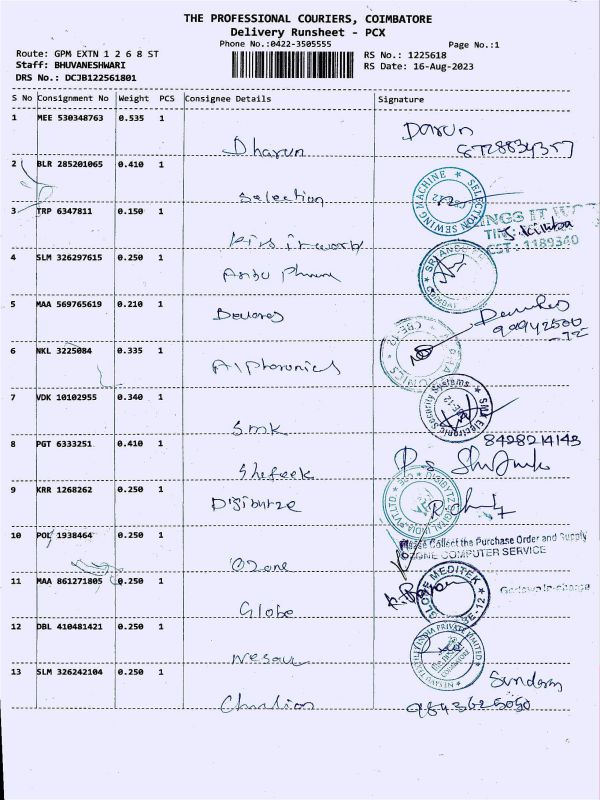 THE PROFESSIONAL COURIERS, COIMBATORE
Delivery Runsheet - PCX
Phone No.:0422-3505555 Page No.:1
Route: GPM EXTN 1 2 6 8 ST RS No.: 1225618
Staff: BHUVANESHWARI RS Date: 16-Aug-2023
DRS No.: DCJB122561801
S No Consignment No Weight PCS Consignee Details Signature
1 MEE 530348763 0.535 1
Dharun Darun
8728834357
2 BLR 285201065 0.410 1
Selection SELECTION SEWING MACHINE
3 TRP 6347811 0.150 1
CST: 1189340
4 SLM 326297615 0.250 1
5 MAA 569765619 0.210 1
6 NKL 3225084 0.335 1
7 VDK 10102955 0.340 1
Smk SMK Electronic Security Systems
8 PGT 6333251 0.410 1 8428214143
Shefeek
9 KRR 1268262 0.250 1
10 POL 1938464 0.250 1 Please Collect the Purchase Order and Supply
Ozone OZONE COMPUTER SERVICE
11 MAA 861271805 0.250 1 GLOBE MEDITEK
Globe Godown in-charge
12 DBL 410481421 0.250 1
13 SLM 326242104 0.250 1 Sundaram
9843625050